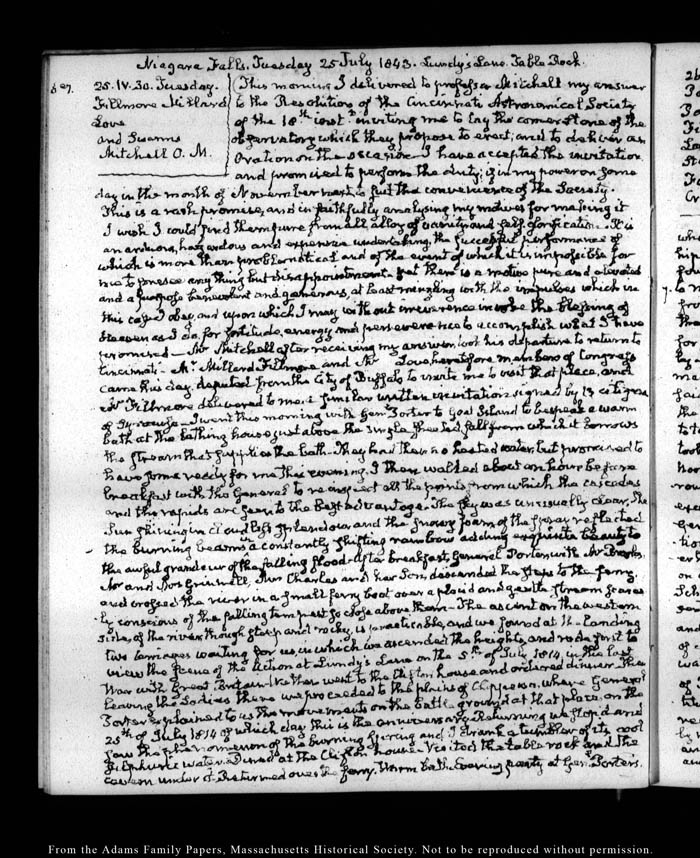 Niagara Falls. Tuesday 25 July 1843. Lundy's Lane. Table Rock.
25. IV. 30. Tuesday.
Fillmore Millard
Love
and Swarms
Mitchell O. M.
This morning I delivered to professor Mitchell my answer
to the Resolution of the Cincinnati Astronomical Society
of the 18th inst inviting me to lay the corner stone of the
observatory which they propose to erect; and to deliver an
Oration on the occasion. I have accepted the invitation
and promised to perform the duty; if in my power on some
day in the month of November next, to suit the convenience of the Society.
This is a rash promise, and in faithfully analysing my motives for making it
I wish I could find them pure from all alloy of vanity and self-glorification. It is
an arduous, hazardous and expensive undertaking, the successful performance of
which is more than problematical and of the event of which it is impossible for
me to presee any thing but disappointment. Yet there is a motive pure and elevated
and a purpose benevolent and generous, at least mingling with the impulses which in
this case I obey, and upon which I may without irreverence invoke the blessing of
Heaven as I do, for fortitude, energy and perseverance to accomplish what I have
promised — Mr Mitchell after receiving my answer, took his departure to return to
Cincinnati - Mr Millard Fillmore and Mr Love, heretofore members of Congress
came this day, deputed from the City of Buffalo to invite me to visit that place, and
Mr Fillmore delivered to me a similar written invitation signed by 13 citizens
of Syracuse - I went this morning with Genl Porter to Goat Island to bespeak a warm
bath at the bathing house just above the single sheeted fall from which it borrows
the stream that supplies the bath - They had then no heated water, but promised to
have some ready for me this evening. I then walked about an hour before
breakfast with the General to re-inspect all the points from which the cascades
and the rapids are seen to the best advantage. The sky was unusually clear, the
Sun shining in cloudless splendour and the snowy foam of the spray reflected
the burning beams in a constantly shifting rainbow adding exquisite beauty to
the awful grandeur of the falling flood - After breakfast, General Porter with Mr
Mr and Mrs Grinnell, Mrs Charles and her Son, descended the steps to the ferry.
and crossed the river in a small ferry boat over a placid and gentle stream scarce
ly conscious of the falling tempest so close above them - The ascent on the western
side of the river though steep and rocky, is practicable, and we found at the landing
two carriages waiting for us, in which we ascended the heights, and rode first to
view the scene of the action at Lundy's Lane on the 5th of July 1814, in the last
War with Great Britain. We then went to the Clifton house and ordered dinner. Then
leaving the Ladies there we proceeded to the plains of Chippewa, where General
Porter explained to us the movements on the battle ground at that place, on the
25th of July 1814 of which day this is the anniversary. Returning we stop'd and
saw the phenomenon of the burning Spring and I drank a tumbler of its cool
sulphuric water. Dined at the Clifton house - Visited the table rock and the
cavern under it. Returned over the ferry. Warm bath. Evening party at Gen. Porter's.
From the Adams Family Papers, Massachusetts Historical Society. Not to be reproduced without permission.